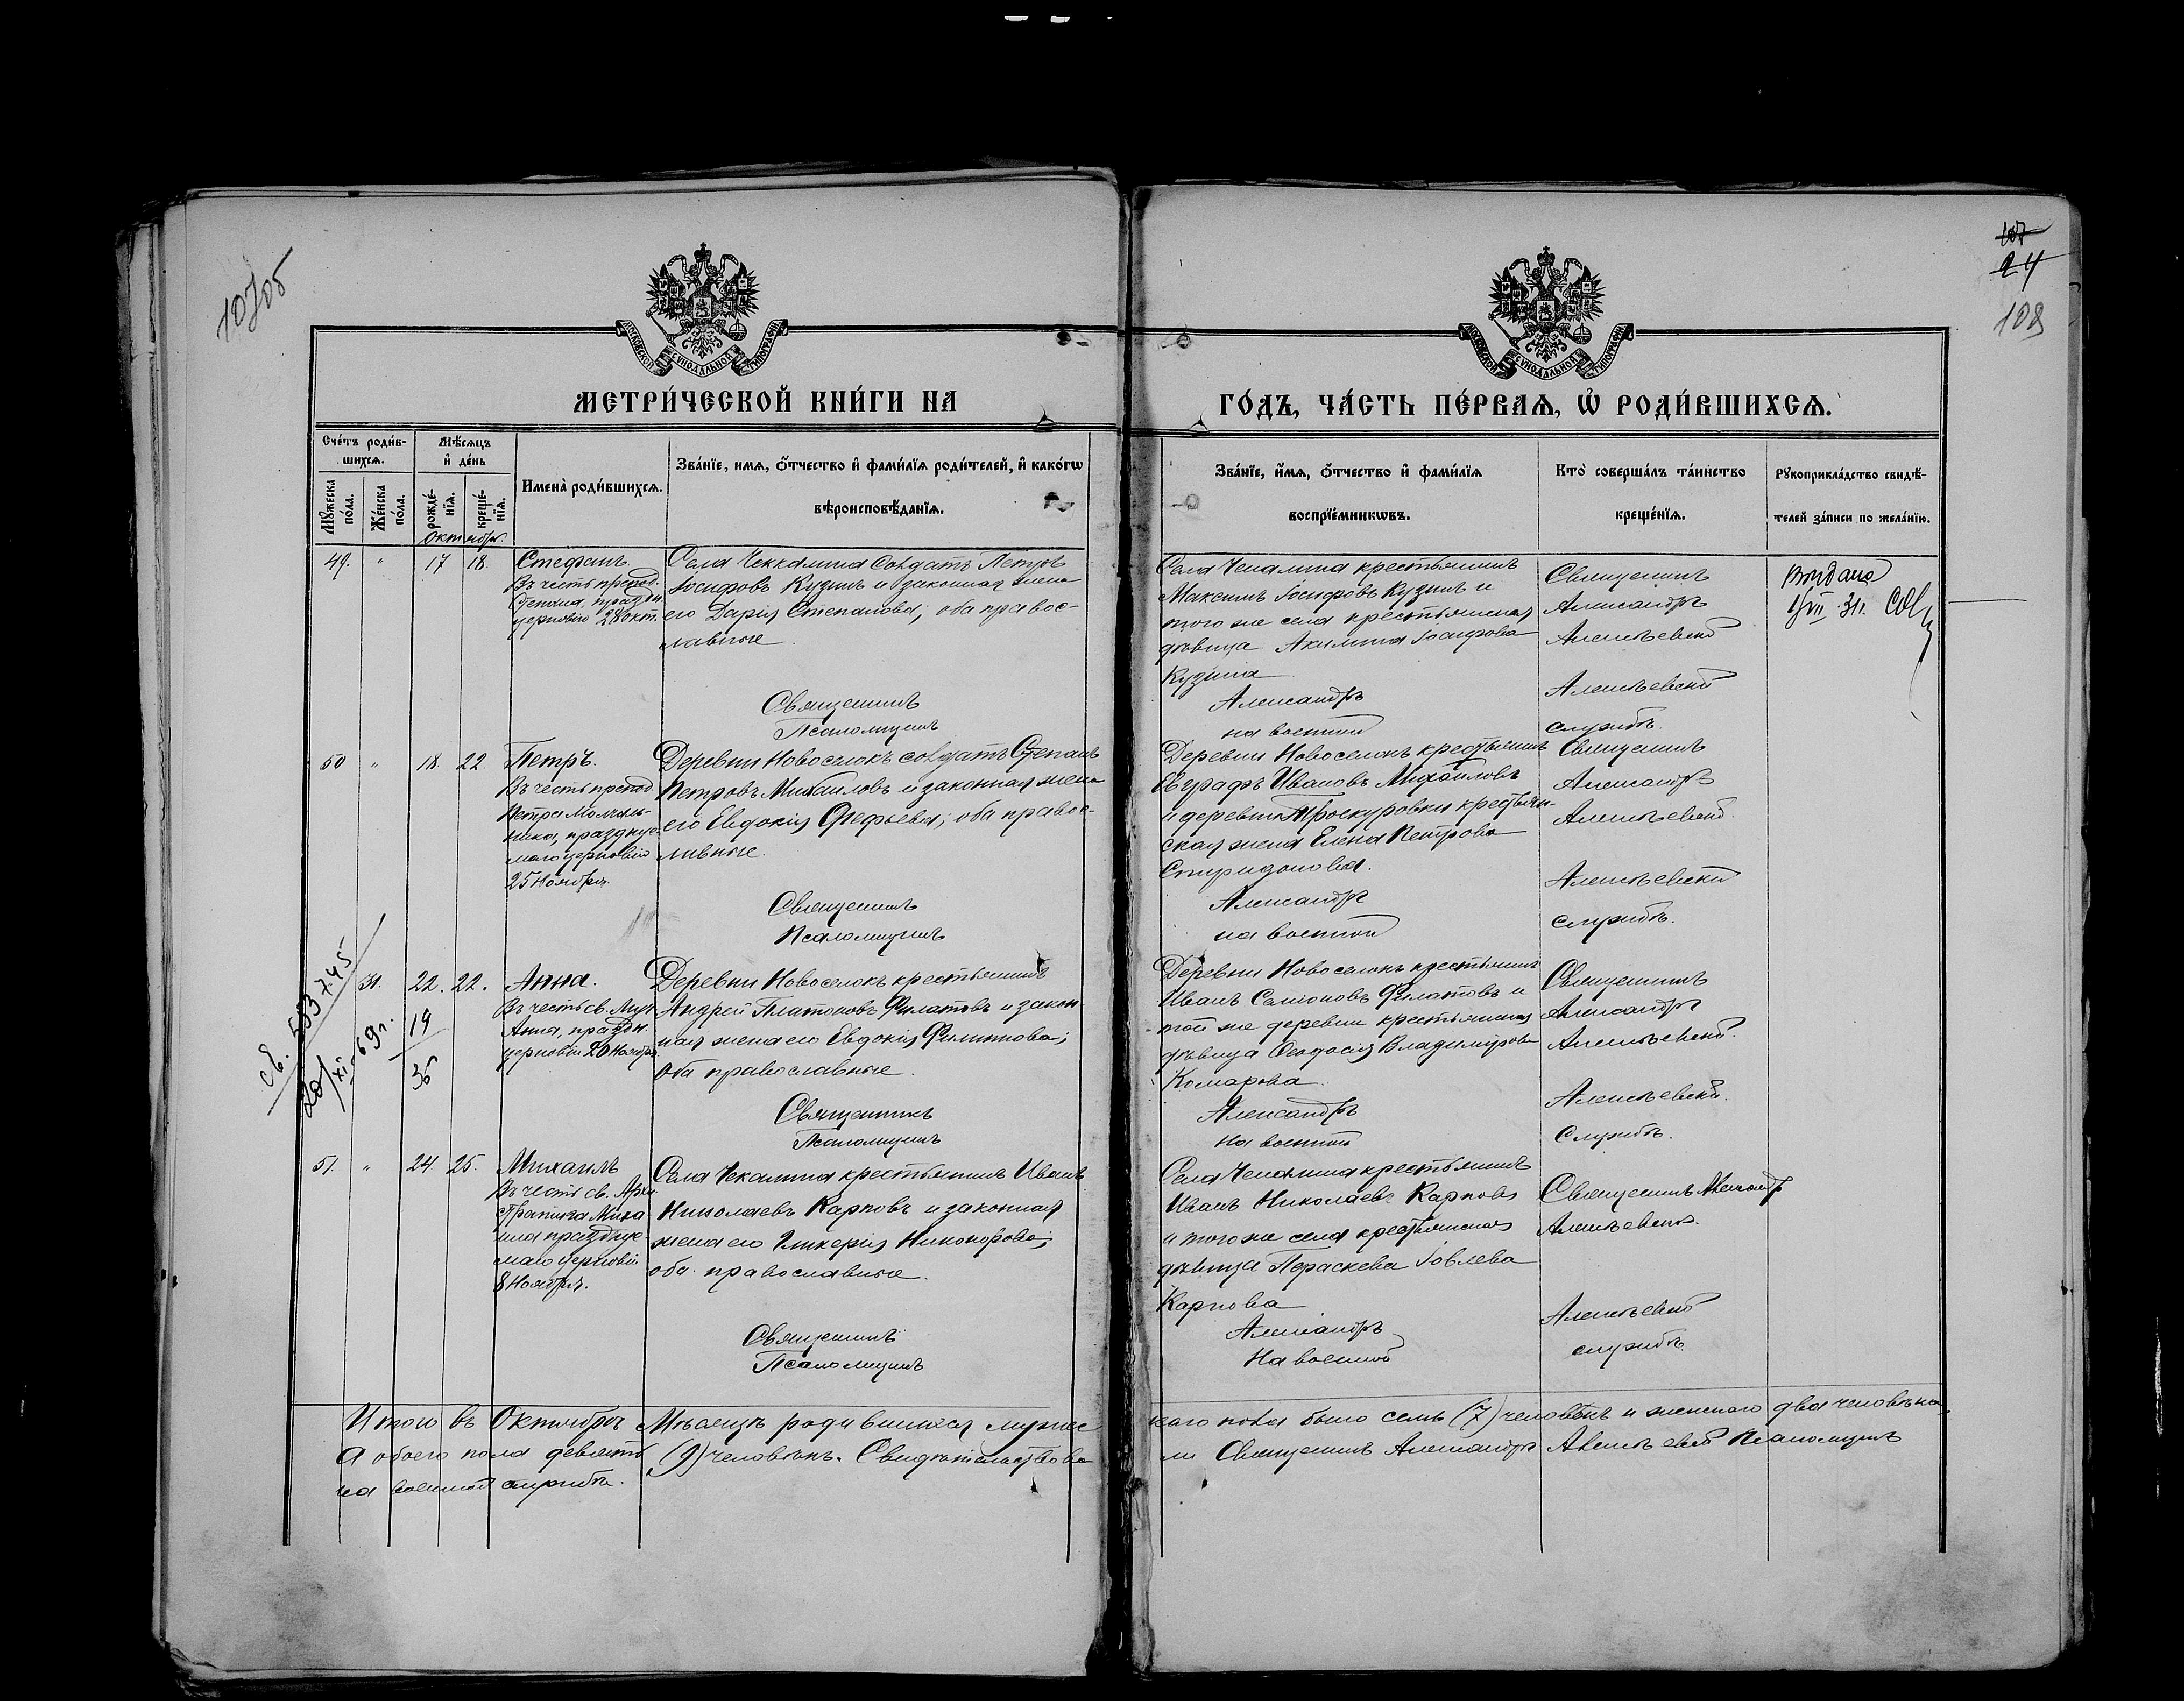 10705
107
24
108
МОСКОВСКОЙ СѴНОДАЛЬНОЙ ТИПОГРАФІИ
МОСКОВСКОЙ СѴНОДАЛЬНОЙ ТИПОГРАФІИ
МЕТРИ́ЧЕСКОЙ КНИ́ГИ НА
ГО́ДЪ, ЧА́СТЬ ПЕ́РВАѦ, Ѡ҆ РОДИ́ВШИХСѦ.
Сче́тъ роди́в-
шихсѧ.
Мѣ́сѧцъ
и҆ де́нь
Мꙋ́жеска
по́ла.
Же́нска
по́ла.
рожде́-
нїѧ.
креще́-
нїѧ.
Имена̀ роди́вшихсѧ.
Зва́нїе, имѧ, ѻ҆́тчество и҆ фами́лїѧ роди́телей, и҆ како́гѡ
вѣроисповѣ́данїѧ.
Зва́нїе, и҆́мѧ, ѻ҆́тчество и҆ фами́лїѧ
воспрїе́мникѡвъ.
Кто̀ соверша́лъ та́инство
креще́нїѧ.
Рꙋкоприкла́дство свидѣ́-
телей за́писи по жела́нїю.
Октября.
49. " 17 18.
Стефанъ
Въ честь препод.
Стефана, праздн.
церковію 28 окт.
Села Чеккалина солдатъ Петръ
Іосифовъ Кузинъ и законная жена
его Дарія Степанова; оба правос-
лавные
Священникъ
Псаломщикъ
Села Чекалина крестьянинъ
Максимъ Іосифовъ Кузинъ и
того же села крестьянская
дѣвица Акилина Іосифова
Кузина
Александръ
на военной
Священникъ
Александръ
Алексѣевскій
Алексѣевскій
службѣ.
Выдана
VII 31г.
50 " 18. 22
Петръ.
Въ честь препод
Петра Молчаль-
ника, праздну-
маго церковію
25 Ноября.
Деревни Новоселокъ солдатъ Степанъ
Петровъ Михайловъ и законная жена
его Евдокія Ѳефьева; оба правос-
лавные.
Священникъ
Псаломщикъ
Деревни Новоселокъ крестьянинъ
Евграфъ Ивановъ Михайловъ
и деревни Проскуровки крестьян-
ская жена Елена Петрова
Спиридонова.
Александръ
на военной
Священникъ
Александръ
Алексѣевскій.
Алексѣевскій
службѣ.
св. 533745
20/XI-69г.
31. 22. 22.
19
36
Анна.
Въ честь св. Муч
Анны, праздн.
церковію 20 Ноября.
Деревни Новоселокъ крестьянинъ
Андрей Платоновъ Филатовъ и закон-
ная жена его Евдокія Филиппова;
оба православные.
Священникъ
Псаломщикъ
Деревни Новоселокъ крестьянинъ
Иванъ Самсоновъ Филатовъ и
той же деревни крестьянская
дѣвица Ѳеодосія Владимірова
Комарова.
Александръ
на военной
Священникъ
Александръ
Алексѣевскій.
Алексѣевскій.
Службѣ.
51. " 24. 25.
Михаилъ
Въ честь св. Архи-
стратига Миха-
ила праздную-
маго церковію
8 Ноября.
Села Чекалина крестьянинъ Иванъ
Николаевъ Карповъ и законная
жена его Гликерія Никонорова;
оба православные.
Священникъ
Псаломщикъ
Села Чекалина крестьянинъ
Иванъ Николаевъ Карповъ
и того же села крестьянская
дѣвица Параскева Іовлева
Карпова
Александръ
На военной
Священникъ Александръ
Алексѣевскій.
Алексѣевскій
службѣ.
Итого въ Октябрѣ Мѣсяцѣ родившихся мужес
каго пола было семь (7) человѣкъ и женскаго два человѣка,
А обоего пола девять (9) человѣкъ. Свидѣтельствова
ли Священникъ Александръ Алексѣевскій Псаломщикъ
на военной службѣ.